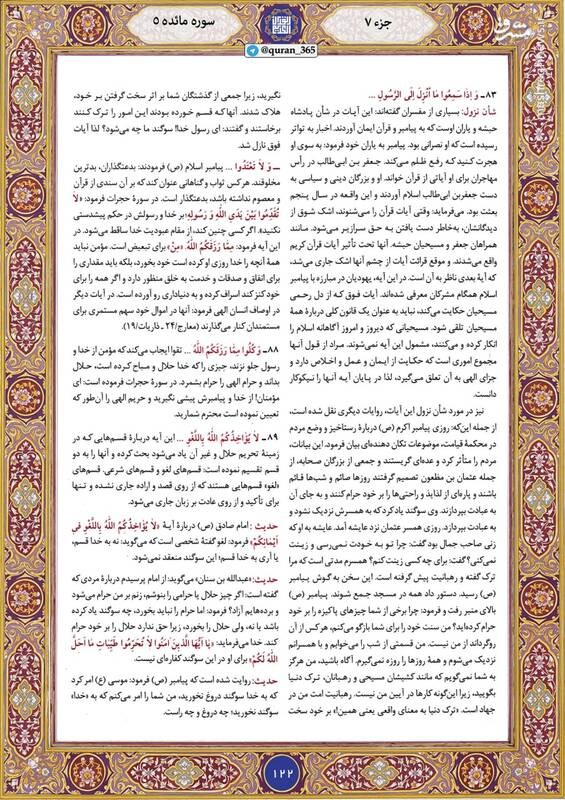 جزء ۷
سوره مائده ۵
@quran_365
مشرق
۸۳ـ وَ إِذَا سَمِعُوا مَا أُنْزِلَ إِلَى الرَّسُولِ ...
شأن نزول: بسیاری از مفسران گفته‌اند: این آیات در شأن پادشاه
حبشه و یاران اوست که به پیامبر و قرآن ایمان آوردند. اخبار به تواتر
رسیده است که او نصرانی بود. پیامبر به یاران خود فرمود: به سوی او
هجرت کنید که رفع ظلم می‌کند. جعفر بن ابی‌طالب در رأس
مهاجران برای او آیاتی از قرآن خواند. او و بزرگان دینی و سیاسی به
دست جعفربن ابی‌طالب اسلام آوردند و این واقعه در سال پنجم
بعثت بود. می‌فرماید: وقتی آیات قرآن را می‌شنوند، اشک شوق از
دیدگانشان، به‌خاطر دست یافتن به حق سرازیر می‌شود. مانند
همراهان جعفر و مسیحیان حبشه. آنها تحت تأثیر آیات قرآن کریم
واقع می‌شدند و موقع قرائت آیات از چشم آنها اشک جاری می‌شد،
که آیهٔ بعدی ناظر به آن است. در این آیه، یهودیان در مبارزه با پیامبر
اسلام همگام مشرکان معرفی شده‌اند. آیات فوق که از دل رحمی
مسیحیان حکایت می‌کند، نباید به عنوان یک قانون کلی دربارهٔ همهٔ
مسیحیان تلقی شود. مسیحیانی که دیروز و امروز آگاهانه اسلام را
انکار کرده و می‌کنند، مشمول این آیه نمی‌شوند. مراد از قول آنها
مجموع اموری است که حکایت از ایمان و عمل و اخلاص دارد و
جزای الهی به آن تعلق می‌گیرد، لذا در پایان آیه آنها را نیکوکار
دانست.
نیز در مورد شأن نزول این آیات، روایات دیگری نقل شده است،
از جمله این‌که: روزی پیامبر اکرم (ص) دربارهٔ رستاخیز و وضع مردم
در محکمهٔ قیامت، موضوعات تکان دهنده‌ای بیان فرمود. این بیانات،
مردم را متأثر کرد و عده‌ای گریستند و جمعی از بزرگان صحابه، از
جمله عثمان بن مظعون تصمیم گرفتند روزها صائم و شب‌ها قائم
باشند و پاره‌ای از لذایذ و راحتی‌ها را بر خود حرام کنند و به جای آن
به عبادت بپردازند. وی سوگند یاد کرد که به همسرش نزدیک نشود و
به عبادت بپردازد. روزی همسر عثمان نزد عایشه آمد. عایشه به او که
زنی صاحب جمال بود گفت: چرا تو به خودت نمی‌رسی و زینت
نمی‌کنی؟ گفت: برای چه‌کسی زینت کنم؟ همسرم مدتی است که مرا
ترک گفته و رهبانیت پیش گرفته است. این سخن به گوش پیامبر
(ص) رسید. دستور داد همه در مسجد جمع شوند. پیامبر (ص)
بالای منبر رفت و فرمود: چرا برخی از شما چیزهای پاکیزه را بر خود
حرام کرده‌اید؟ من سنت خود را برای شما بازگو می‌کنم، هرکس از آن
روگرداند از من نیست. من قسمتی از شب را می‌خوابم و با همسرانم
نزدیک می‌شوم و همهٔ روزها را روزه نمی‌گیرم. آگاه باشید، من هرگز
به شما نمی‌گویم که مانند کشیشان مسیحی و رهبانان، ترک دنیا
بگویید، زیرا این‌گونه کارها در آیین من نیست. رهبانیت امت من در
جهاد است. «ترک دنیا به معنای واقعی یعنی همین!» بر خود سخت
نگیرید، زیرا جمعی از گذشتگان شما بر اثر سخت گرفتن بر خود،
هلاک شدند. آنها که قسم خورده بودند این امور را ترک کنند
برخاستند و گفتند: ای رسول خدا! سوگند ما چه می‌شود؟ لذا آیات
فوق نازل شد.
ــ وَ لَا تَعْتَدُوا ... پیامبر اسلام (ص) فرمودند: بدعتگذاران، بدترین
مخلوقند. هرکس ثواب و گناهانی عنوان کند که بر آن سندی از قرآن
و معصوم نداشته باشد، بدعتگذار است. در سورهٔ حجرات فرمود: «لَا
تُقَدِّمُوا بَيْنَ يَدَيِ اللَّهِ وَ رَسُولِهِ؛ بر خدا و رسولش در حکم پیشدستی
نکنید». اگر کسی چنین کند، از مقام عبودیت خدا ساقط می‌شود. در
این آیه فرمود: مِمَّا رَزَقَكُمُ اللَّهُ. «مِنْ» برای تبعیض است. مؤمن نباید
همهٔ آنچه را خدا روزی او کرده است خود بخورد، بلکه باید مقداری را
برای انفاق و صدقات و خدمت به خلق منظور دارد و اگر همه را برای
خود کنز کند اسراف کرده و به دنیاداری رو آورده است. در آیات دیگر
در اوصاف انسان الهی فرمود: آنها در اموال خود سهم مستمری برای
مستمندان کنار می‌گذارند (معارج/۲۴ ـ ذاریات/۱۹).
۸۸ـ وَ كُلُوا مِمَّا رَزَقَكُمُ اللَّهُ ... تقوا ایجاب می‌کند که مؤمن از خدا و
رسول جلو نزند، چیزی را که خدا حلال و مباح کرده است، حلال
بداند و حرام الهی را حرام بشمرد. در سورهٔ حجرات فرموده است: ای
مؤمنان! از خدا و پیامبرش پیشی نگیرید و حریم الهی را آن‌طور که
تعیین نموده است محترم شمارید.
۸۹ـ لَا يُؤَاخِذُكُمُ اللَّهُ بِاللَّغْوِ ... این آیه دربارهٔ قسم‌هایی که در
زمینهٔ تحریم حلال و غیر آن یاد می‌شود بحث کرده و آنها را به دو
قسم تقسیم نموده است: قسم‌های لغو و قسم‌های شرعی. قسم‌های
«لغو» قسم‌هایی هستند که از روی قصد و اراده جاری نشده و تنها
برای تأکید و از روی عادت بر زبان جاری می‌شود.
حدیث: امام صادق (ص) دربارهٔ آیهٔ «لَا يُؤَاخِذُكُمُ اللَّهُ بِاللَّغْوِ فِي
أَيْمَانِكُمْ» فرمود: لغو گفتهٔ شخصی است که می‌گوید: نه به خدا قسم،
یا آری به خدا قسم؛ این سوگند منعقد نمی‌شود.
حدیث: «عبدالله بن سنان» می‌گوید: از امام پرسیدم دربارهٔ مردی که
گفته است: اگر چیز حلال یا حرامی را بنوشم، زنم بر من حرام می‌شود
و برده‌هایم آزاد؟ فرمود: اما حرام را نباید بخورد، چه سوگند یاد کرده
باشد یا نه، ولی حلال را بخورد، زیرا حق ندارد حلال را بر خود حرام
کند. خدا می‌فرماید: «يَا أَيُّهَا الَّذِينَ آمَنُوا لَا تُحَرِّمُوا طَيِّبَاتِ مَا أَحَلَّ
اللَّهُ لَكُمْ» برای او در این سوگند کفاره‌ای نیست.
حدیث: روایت شده است که پیامبر (ص) فرمود: موسی (ع) امر کرد
که به خدا سوگند دروغ نخورید، من شما را امر می‌کنم که به «خدا»
سوگند نخورید؛ چه دروغ و چه راست.
۱۲۲